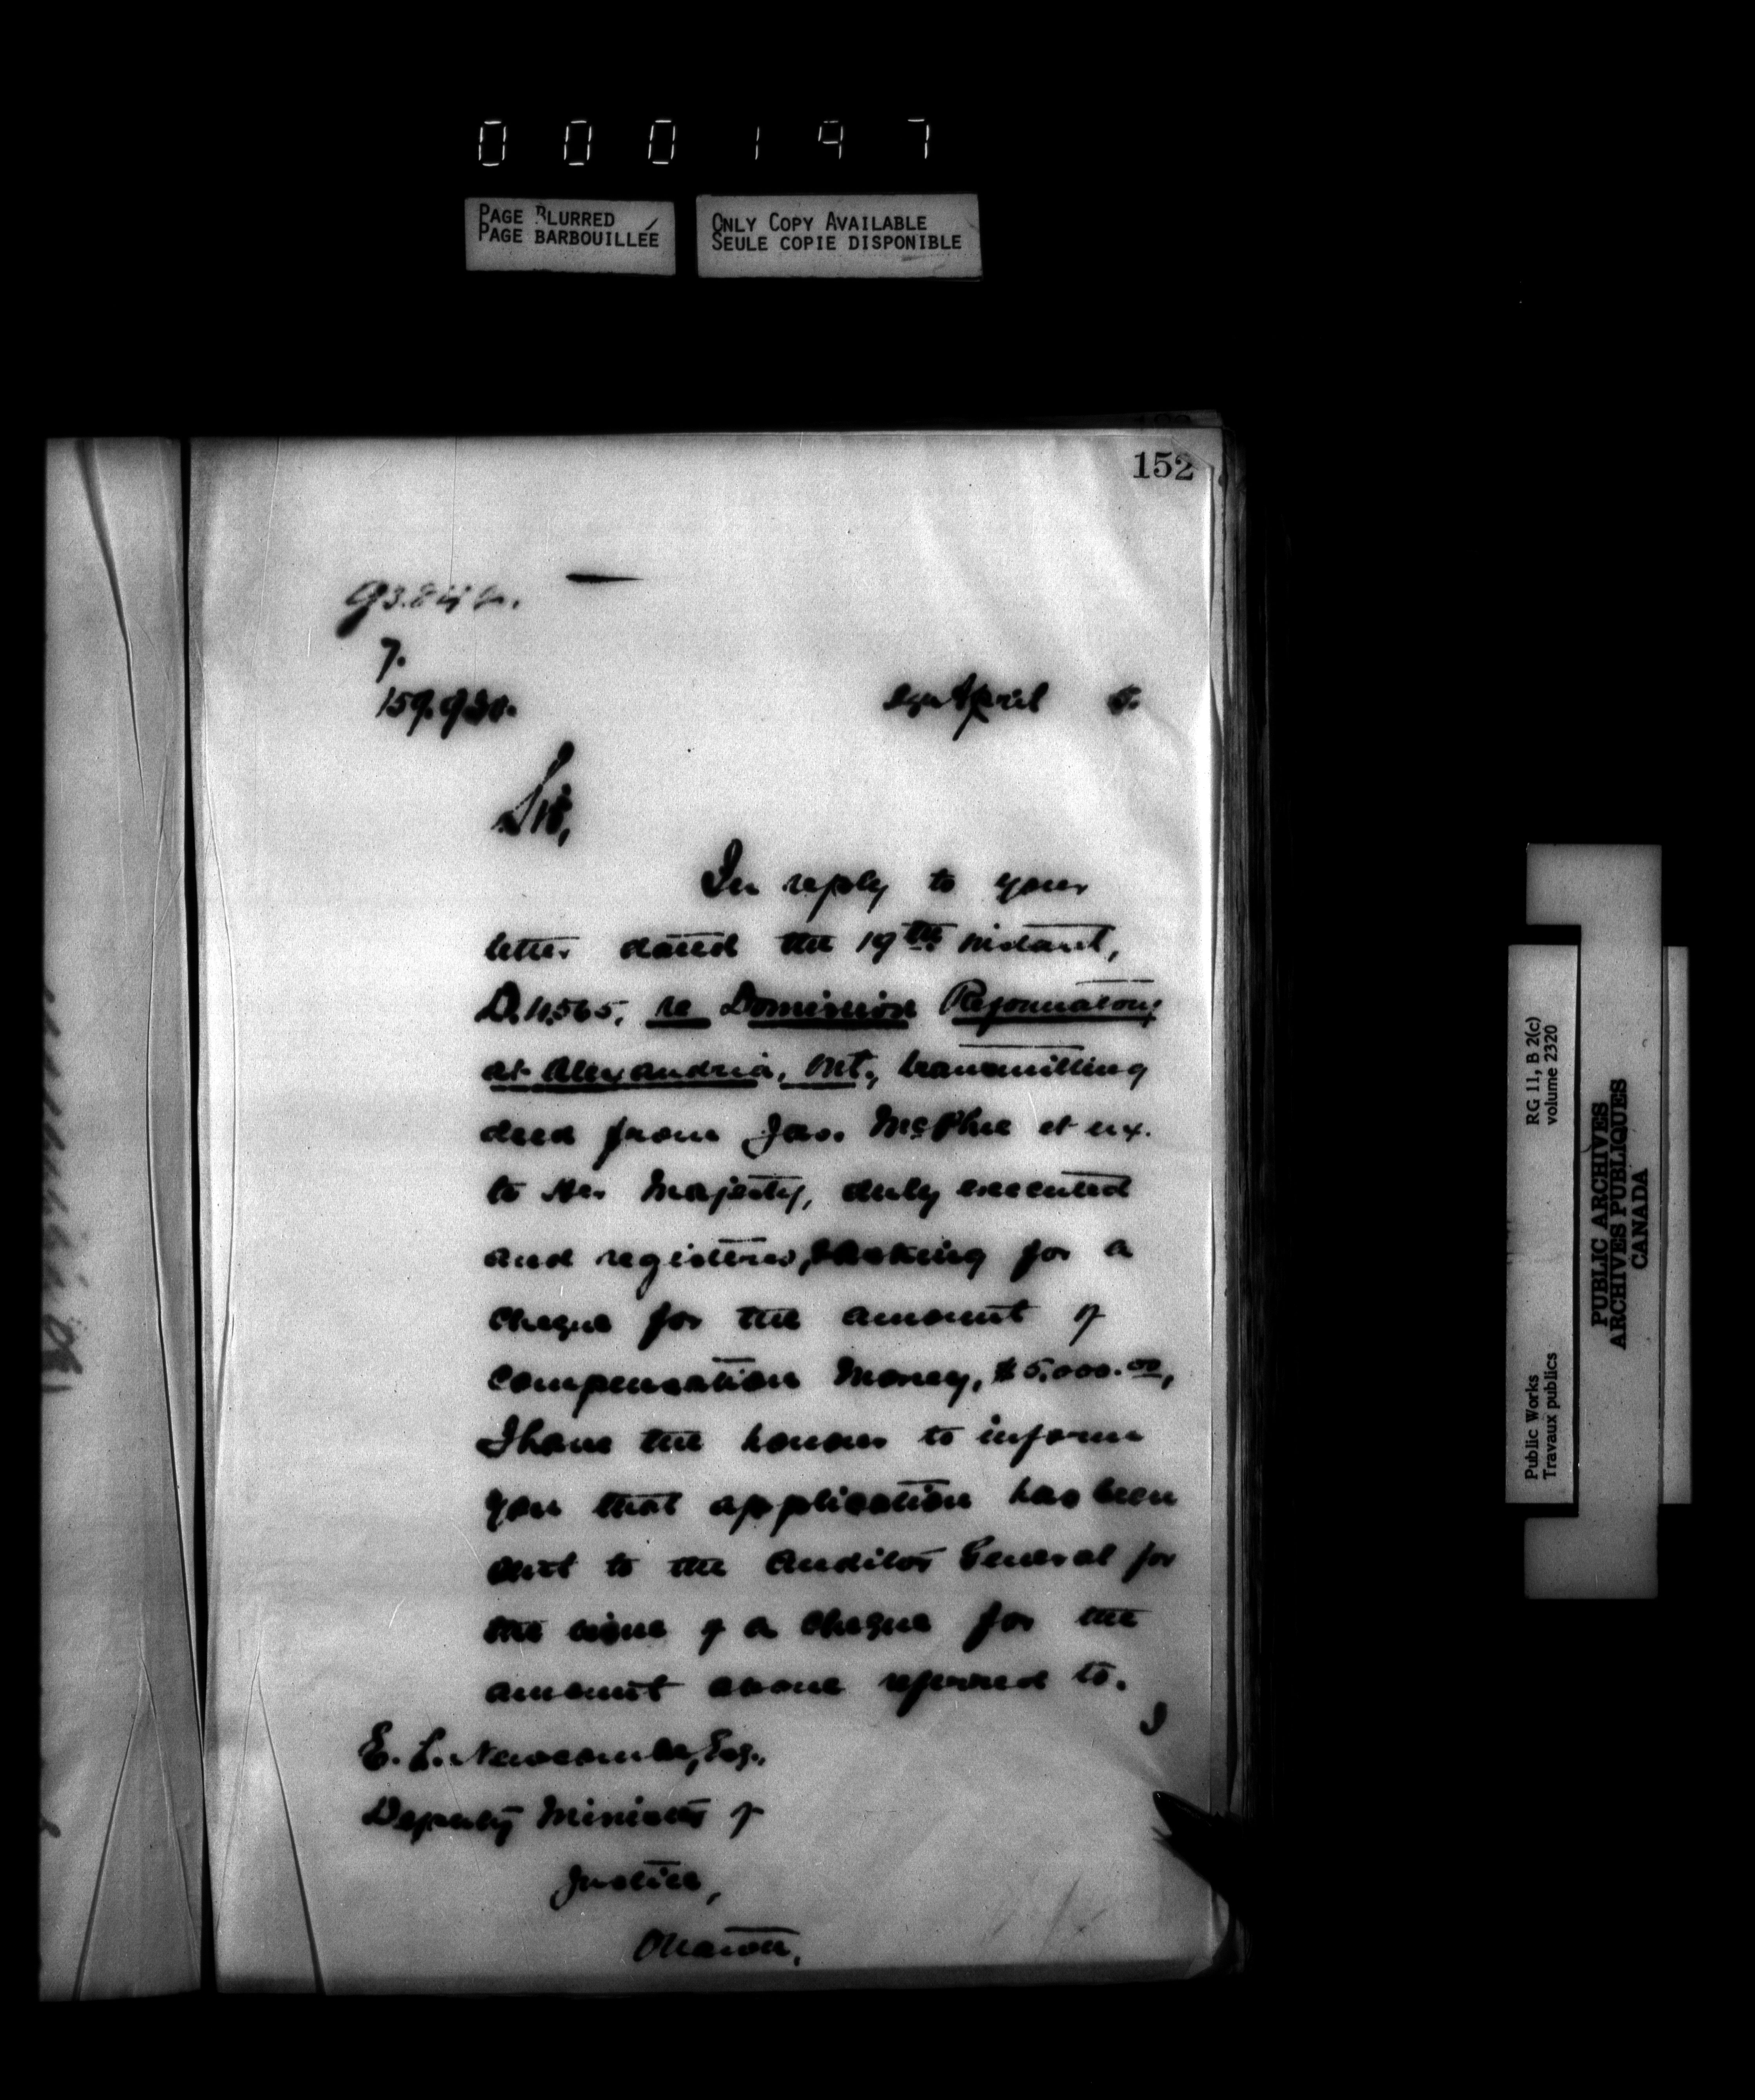 000197
PAGE BLURRED
PAGE BARBOUILLÉE
ONLY COPY AVAILABLE
SEULE COPIE DISPONIBLE
152
7.
April
Sir,
In reply to your
letter dated the 19th instant,
D. 11,565, re Dominion Reformatory
at Alexandria, Ont., transmitting
deed from Jas. McPhee et ux.
to Her Majesty, duly executed
and registered, asking for a
cheque for the amount of
compensation money, $5,000.00,
I have the honour to inform
you that application has been
sent to the Auditor General for
the issue of a cheque for the
amount above referred to.
E. L. Newcombe, Esq.,
Deputy Minister of
Justice,
Ottawa.
RG 11, B 2(c)
volume 2320
Public Works
Travaux publics
PUBLIC ARCHIVES
ARCHIVES PUBLIQUES
CANADA